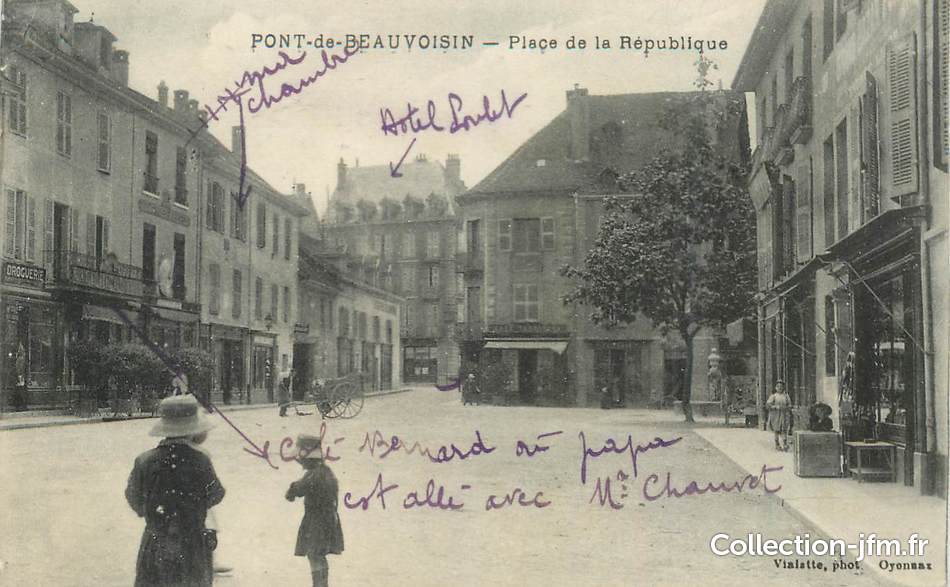 PONT-de-BEAUVOISIN — Place de la République
ma
chambre
Hotel Loulet
DROGUERIE
Café Bernard où papa
est allé avec Mr Chauvet
Collection-jfm.fr
Vialatte, phot. Oyonnax